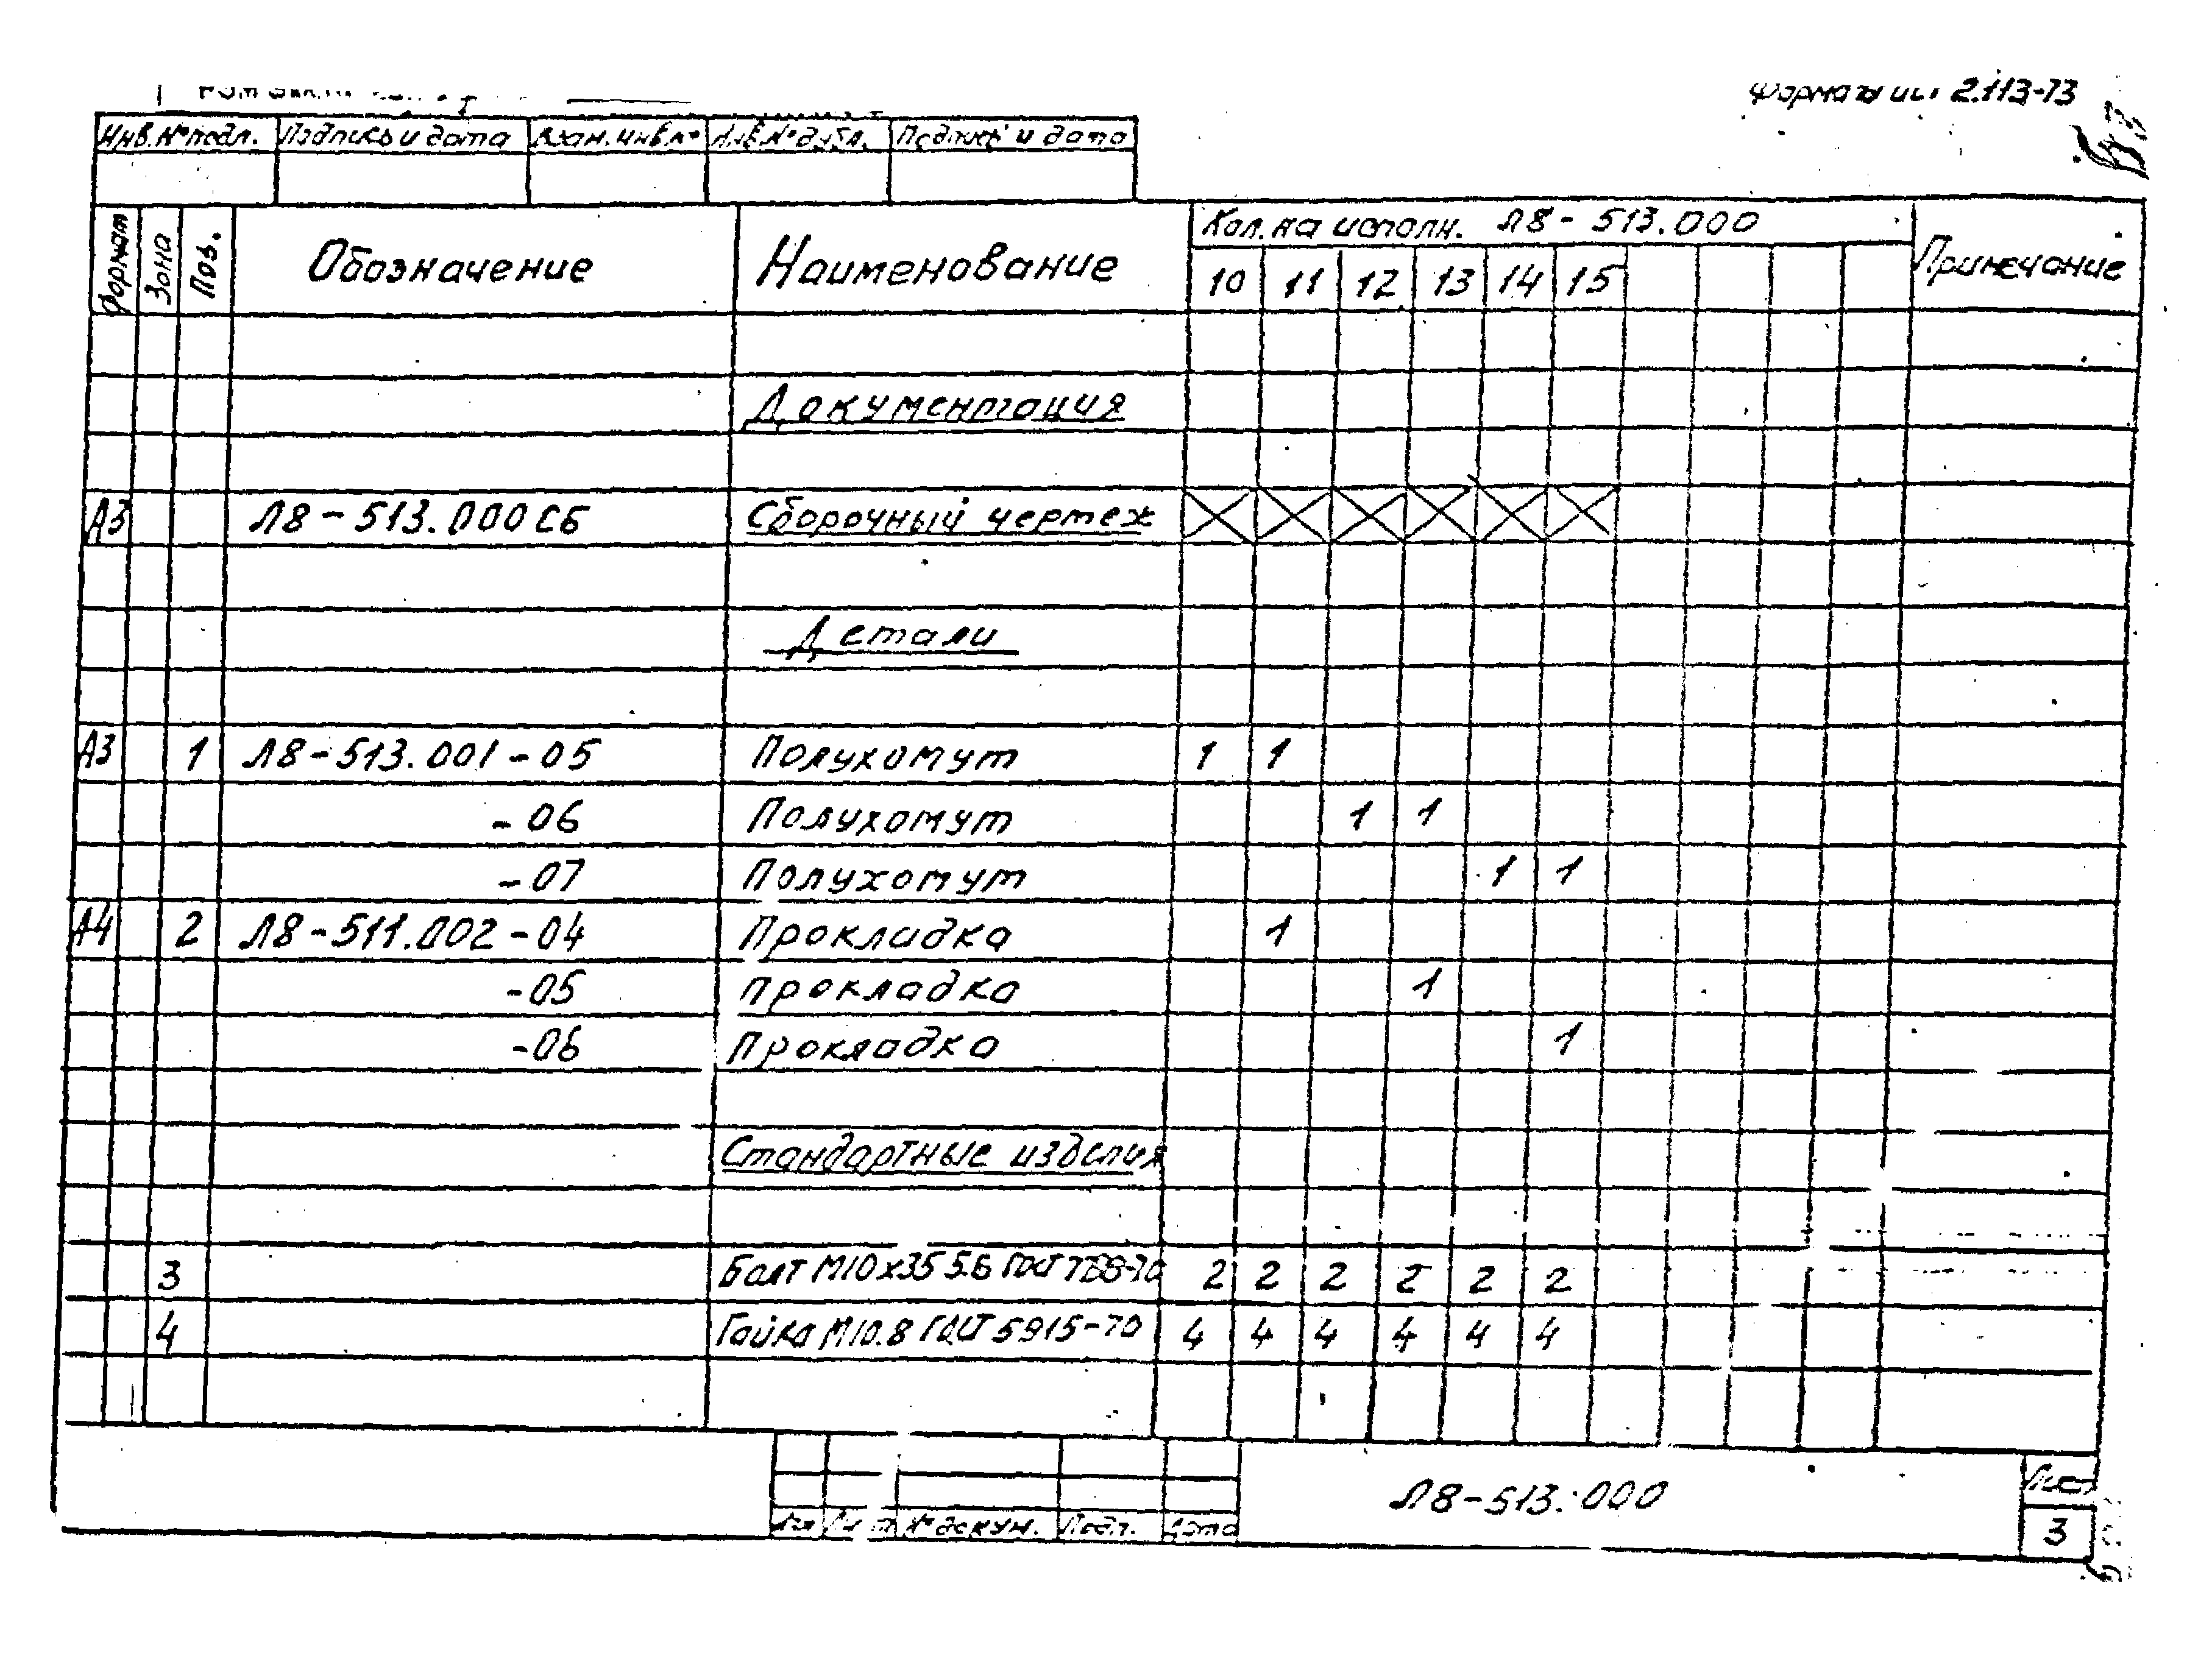 2.113-73
Инв.№ подл. Подпись и дата Взам.инв.№ Инв.№ дубл. Подпись и дата
Формат Зона Поз. Обозначение Наименование Кол. на исполн. Л8-513.000 Примечание
10 11 12 13 14 15
Документация
А3 Л8-513.000СБ Сборочный чертеж
Детали
А3 1 Л8-513.001-05 Полухомут 1 1
-06 Полухомут 1 1
-07 Полухомут 1 1
А4 2 Л8-511.002-04 Прокладка 1
-05 Прокладка 1
-06 Прокладка 1
Стандартные изделия
3 Болт М10х35 5.6 ГОСТ 2 2 2 2 2 2
4 Гайка М10.8 ГОСТ 5915-70 4 4 4 4 4 4
Л8-513.000 Лист
Лист № докум. Подп. Дата 3